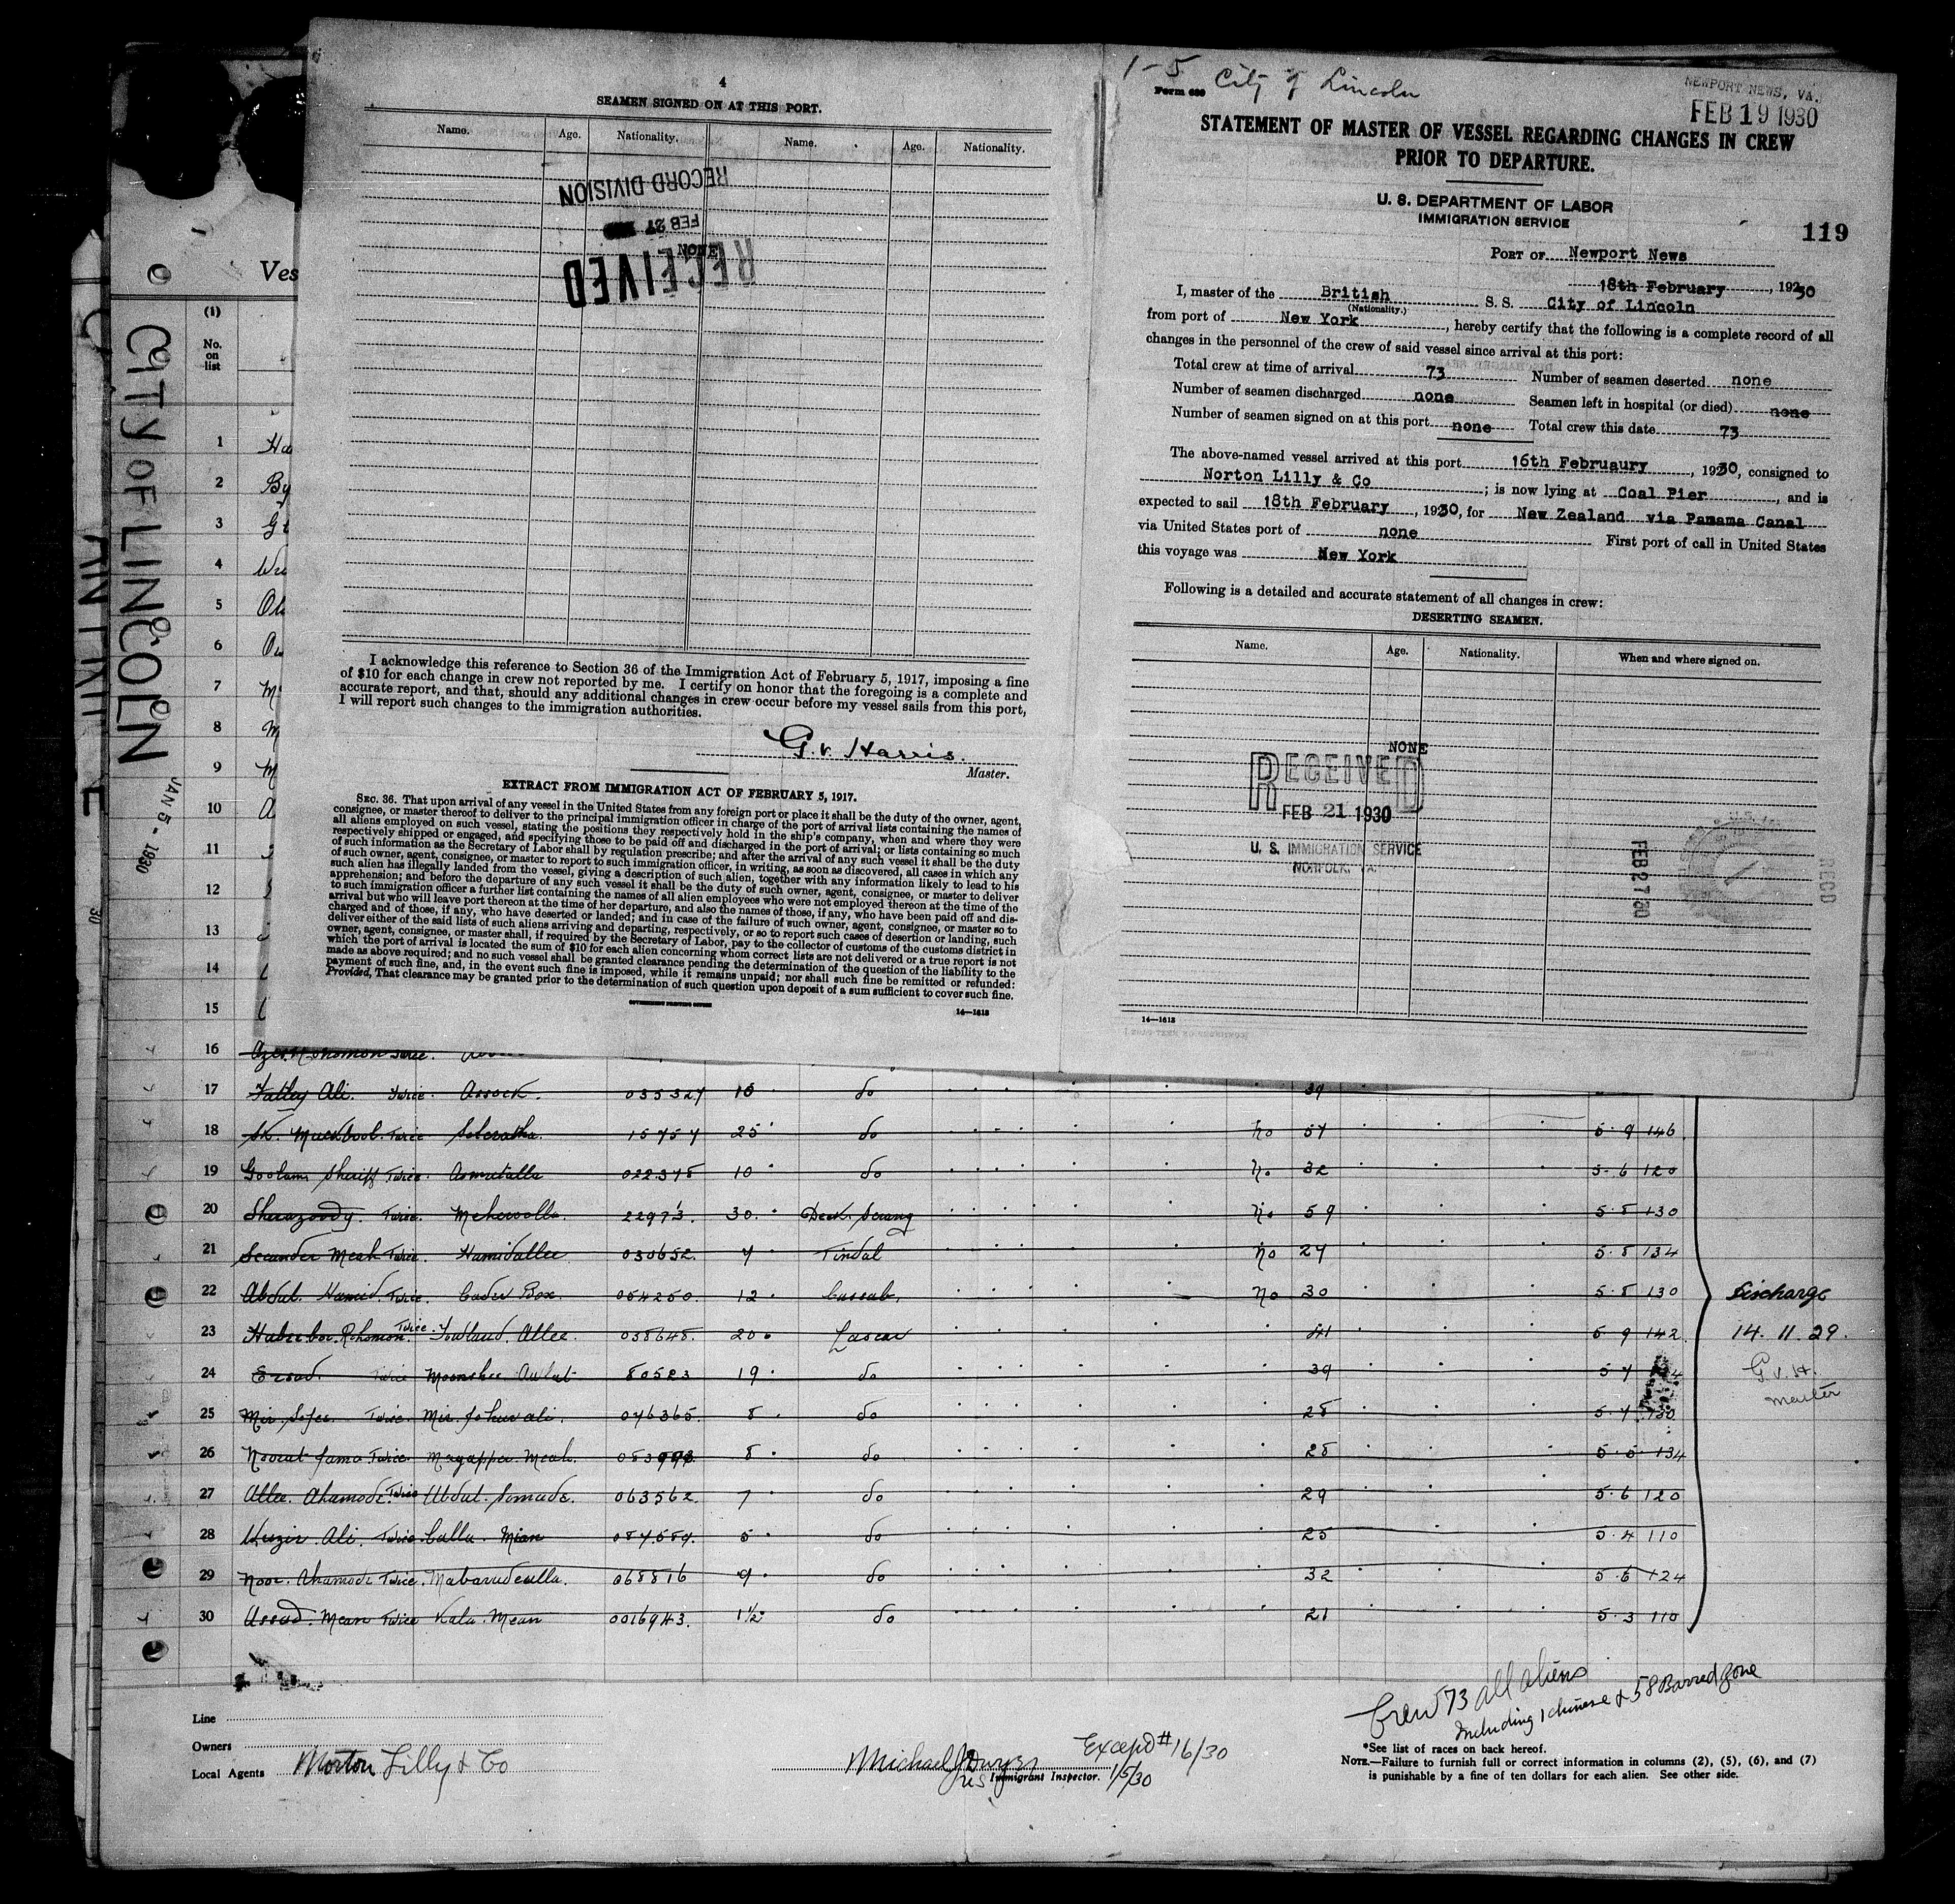 4
SEAMEN SIGNED ON AT THIS PORT.
Name. Age. Nationality. Name. Age. Nationality.
RECORD DIVISION
FEB 27
NONE
RECEIVED
I acknowledge this reference to Section 36 of the Immigration Act of February 5, 1917, imposing a fine
of $10 for each change in crew not reported by me. I certify on honor that the foregoing is a complete and
accurate report, and that, should any additional changes in crew occur before my vessel sails from this port,
I will report such changes to the immigration authorities.
G. v. Harris.
Master.
EXTRACT FROM IMMIGRATION ACT OF FEBRUARY 5, 1917.
SEC. 36. That upon arrival of any vessel in the United States from any foreign port or place it shall be the duty of the owner, agent,
consignee, or master thereof to deliver to the principal immigration officer in charge of the port of arrival lists containing the names of
all aliens employed on such vessel, stating the positions they respectively hold in the ship's company, when and where they were
respectively shipped or engaged, and specifying those to be paid off and discharged in the port of arrival; or lists containing so much
of such information as the Secretary of Labor shall by regulation prescribe; and after the arrival of any such vessel it shall be the duty
of such owner, agent, consignee, or master to report to such immigration officer, in writing, as soon as discovered, all cases in which any
such alien has illegally landed from the vessel, giving a description of such alien, together with any information likely to lead to his
apprehension; and before the departure of any such vessel it shall be the duty of such owner, agent, consignee, or master to deliver
to such immigration officer a further list containing the names of all alien employees who were not employed thereon at the time of the
arrival but who will leave port thereon at the time of her departure, and also the names of those, if any, who have been paid off and dis-
charged and of those, if any, who have deserted or landed; and in case of the failure of such owner, agent, consignee, or master so to
deliver either of the said lists of such aliens arriving and departing, respectively, or so to report such cases of desertion or landing, such
owner, agent, consignee, or master shall, if required by the Secretary of Labor, pay to the collector of customs of the customs district in
which the port of arrival is located the sum of $10 for each alien concerning whom correct lists are not delivered or a true report is not
made as above required; and no such vessel shall be granted clearance pending the determination of the question of the liability to the
payment of such fine, and, in the event such fine is imposed, while it remains unpaid; nor shall such fine be remitted or refunded:
Provided, That clearance may be granted prior to the determination of such question upon deposit of a sum sufficient to cover such fine.
GOVERNMENT PRINTING OFFICE
14—1618
1-5 City of Lincoln
NEWPORT NEWS, VA.
FEB 19 1930
STATEMENT OF MASTER OF VESSEL REGARDING CHANGES IN CREW
PRIOR TO DEPARTURE.
U. S. DEPARTMENT OF LABOR
IMMIGRATION SERVICE
119
PORT OF Newport News
18th February, 1930
I, master of the British S. S. City of Lincoln
(Nationality.)
from port of New York, hereby certify that the following is a complete record of all
changes in the personnel of the crew of said vessel since arrival at this port:
Total crew at time of arrival 73 Number of seamen deserted none
Number of seamen discharged none Seamen left in hospital (or died) none
Number of seamen signed on at this port none Total crew this date 73
The above-named vessel arrived at this port 16th Februaury, 1930, consigned to
Norton Lilly & Co; is now lying at Coal Pier, and is
expected to sail 18th February, 1930, for New Zealand via Panama Canal
via United States port of none First port of call in United States
this voyage was New York
Following is a detailed and accurate statement of all changes in crew:
DESERTING SEAMEN.
Name. Age. Nationality. When and where signed on.
NONE
RECEIVED
FEB 21 1930
U. S. IMMIGRATION SERVICE
NORFOLK, VA.
FEB 27 30
REC'D
14—1618
Ves
(1)
No.
on
list
CITY OF LINCOLN
JAN 5 - 1930
1 Ha
2 By
3
4
5
6
7 M
8 M
9 M
10 A
11
12
13
14
15
16
17 Fatley Ali. Twice. 035327 10 do 39
18 Sk. Muckbool. Twice 15757 25 do no 57 5 9 146
19 Goolam Sheriff Twice. 022378 10 do no 32 5 6 120
20 Twice. 22973. 30. Deck Serang no 59 5 8 130
21 Secander Meah Twice Hamidallee 030652. 7 Tindal no 27 5 8 134
22 Abdul Hamid. Twice. Cader Box. 054250. 12 Cassab. no 30 5 8 130
23 Twice. 038648. 20 Lascar 41 5 9 142
24 Twice 80523 19 do 39 5 7
25 Twice 046365. 8 do 28 5 7 130
26 Twice 8 do 28 5 5 134
27 Allee. Ahamode. Twice Abdul. 063562. 7 do 29 5 6 120
28 Wuzir. Ali. Twice Calla. Mian 087589. 5 do 25 5 4 110
29 Noor. Ahamode Twice. 068816 9 do 32 5 6 124
30 Assad. Mean Twice Kala. Mean 0016943. 1½ do 21 5 3 110
discharge
14. 11. 29.
G. v. H.
master
Crew 73 all aliens
Including 1 chinese & 58 Barred Zone
Line
Owners
Local Agents Norton Lilly & Co
Michael J Dwyer
US Immigrant Inspector. 1/5/30
Except # 16/30
*See list of races on back hereof.
NOTE.—Failure to furnish full or correct information in columns (2), (5), (6), and (7)
is punishable by a fine of ten dollars for each alien. See other side.